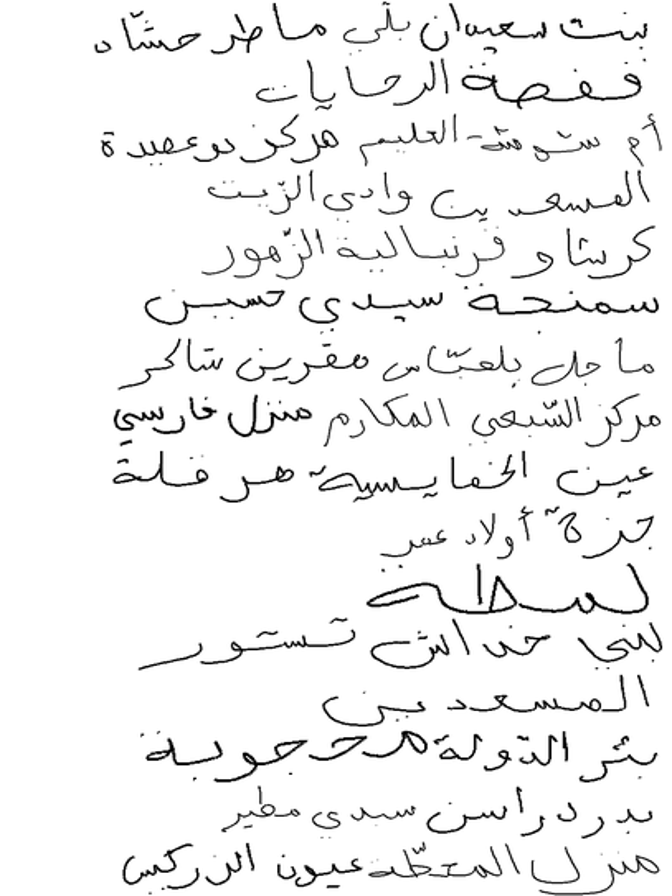 بنت سعيدان بلّي ماطر حشّاد
قفصة الرحايات
أم شوشة العليم مركز بوعصيدة
المسعدين وادي الزّيت
كريشاو قرنبالية الزّهور
سمنجة سيدي حسين
ماجل بلعبّاس مقرين شاكر
مركز السّبعي المكارم منزل فارسي
عين الخفايسية هرقلة
حزة أولاد عمر
لسطة
بني خداش تستور
المسعدين
بئر الدّولة محجوبة
بئر دراسن سيدي مطير
منزل المحطّة عيون الزركين